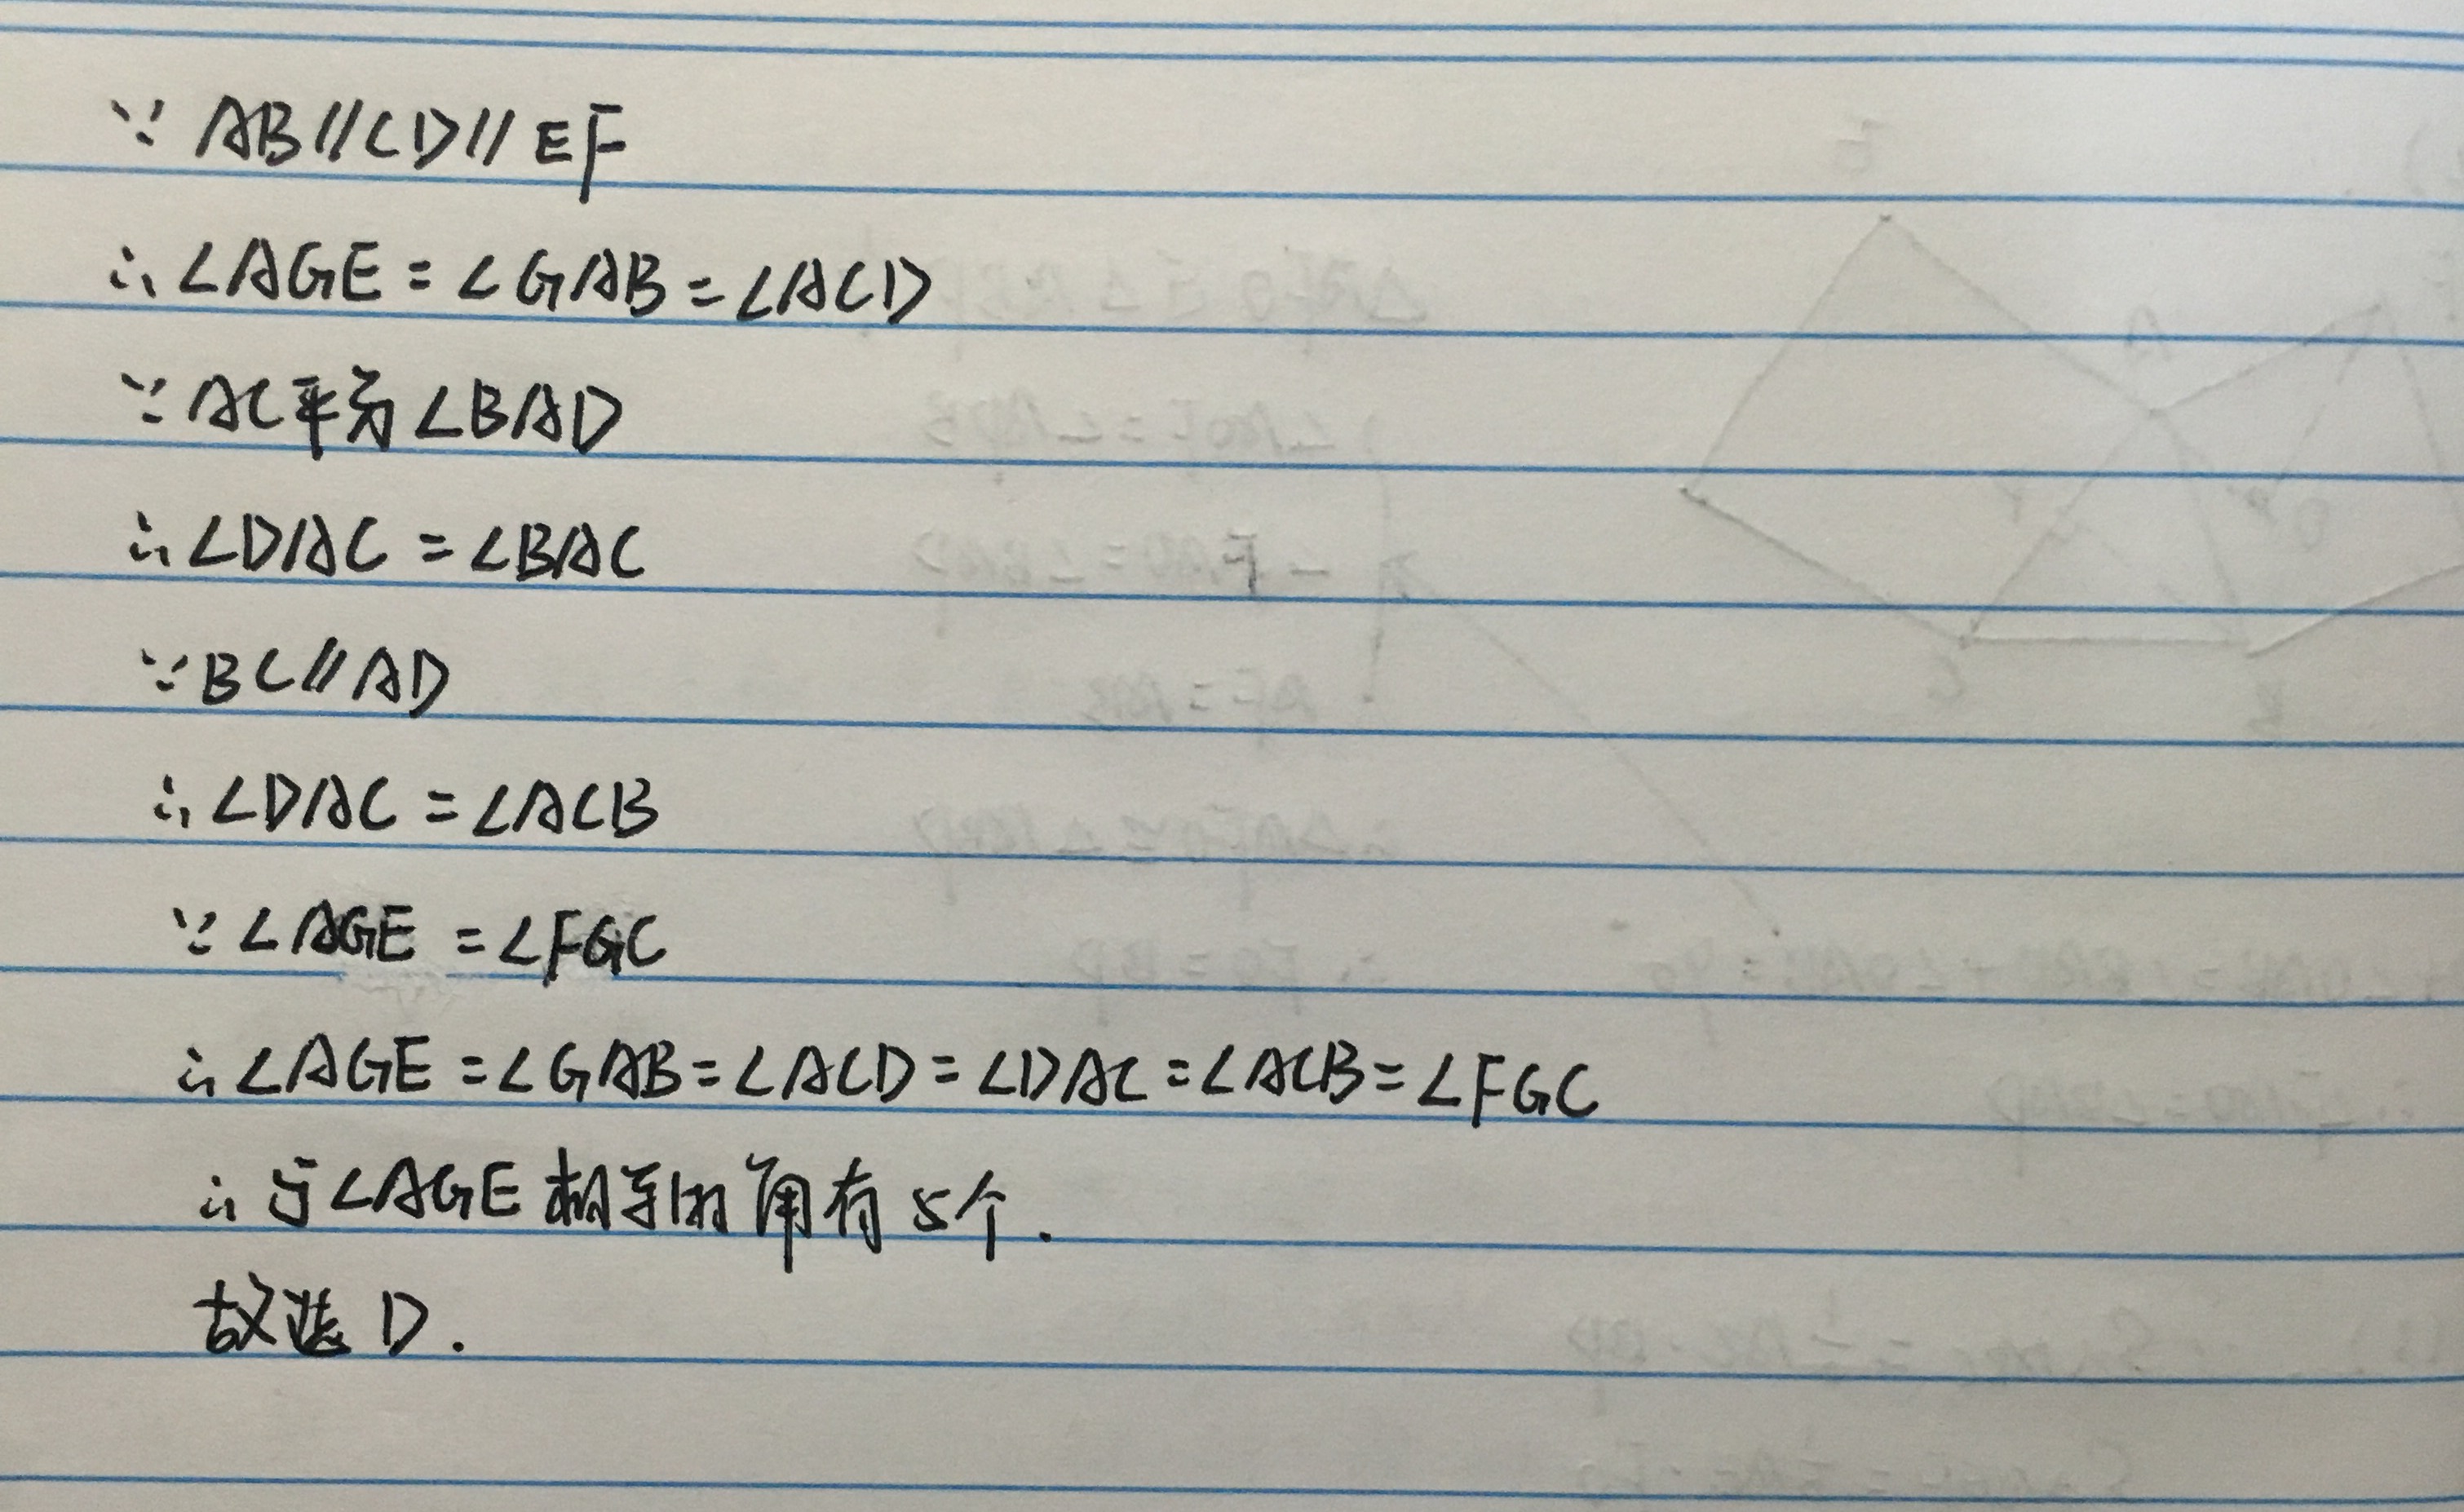 ∵ AB∥CD∥EF
∴∠AGE=∠GAB=∠ACD
∵AC平分∠BAD
∴∠DAC=∠BAC
∵BC∥AD
∴∠DAC=∠ACB
∵∠AGE=∠FGC
∴∠AGE=∠GAB=∠ACD=∠DAC=∠ACB=∠FGC
∴与∠AGE相等的角有5个.
故选D.